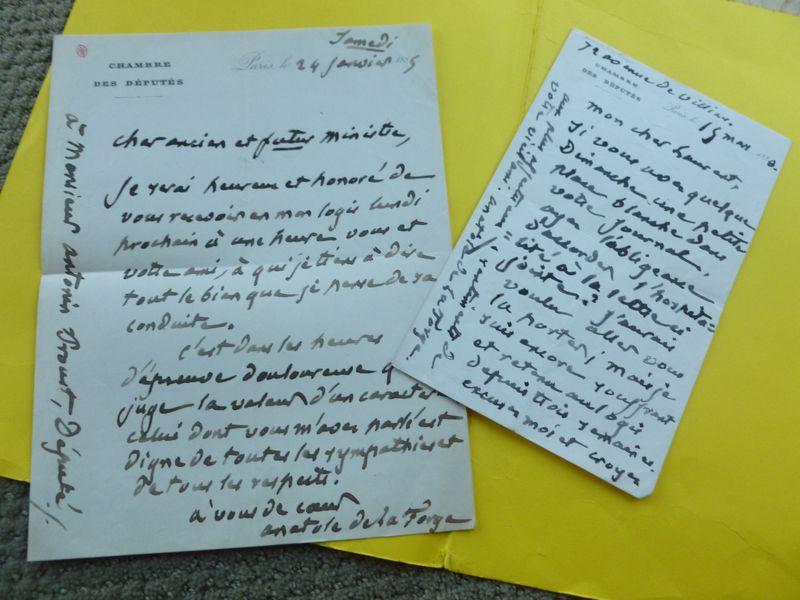 CHAMBRE
DES DÉPUTÉS
Samedi
Paris, le 24 Janvier 1885
cher ancien et futur ministre,
Je serai heureux et honoré de
vous recevoir en mon logis lundi
prochain à une heure vous et
votre ami, à qui je tiens à dire
tout le bien que je pense de sa
conduite.
c'est dans les heures
d'épreuve douloureuse qu
juge la valeur d'un caractère
celui dont vous m'avez parlé est
digne de toutes les sympathies et
de tous les respects.
à vous de cœur
anatole de la Forge
à Monsieur antonin Proust, Député
72 avenue de Villiers
CHAMBRE
DES DÉPUTÉS
Paris, le 15 mars 188
mon cher
Si vous avez quelque
Dimanche une petite
place blanche dans
votre journal,
ayez l'obligeance
d'accorder l'hospita=
=lité à la lettre ci
jointe? J'aurais
voulu aller vous
la porter; mais je
suis encore souffrant
et retenu au logis
depuis trois semaines.
excusez moi et croyez
aux plus affectueux sentiments de
votre vieil ami. anatole de la Forge